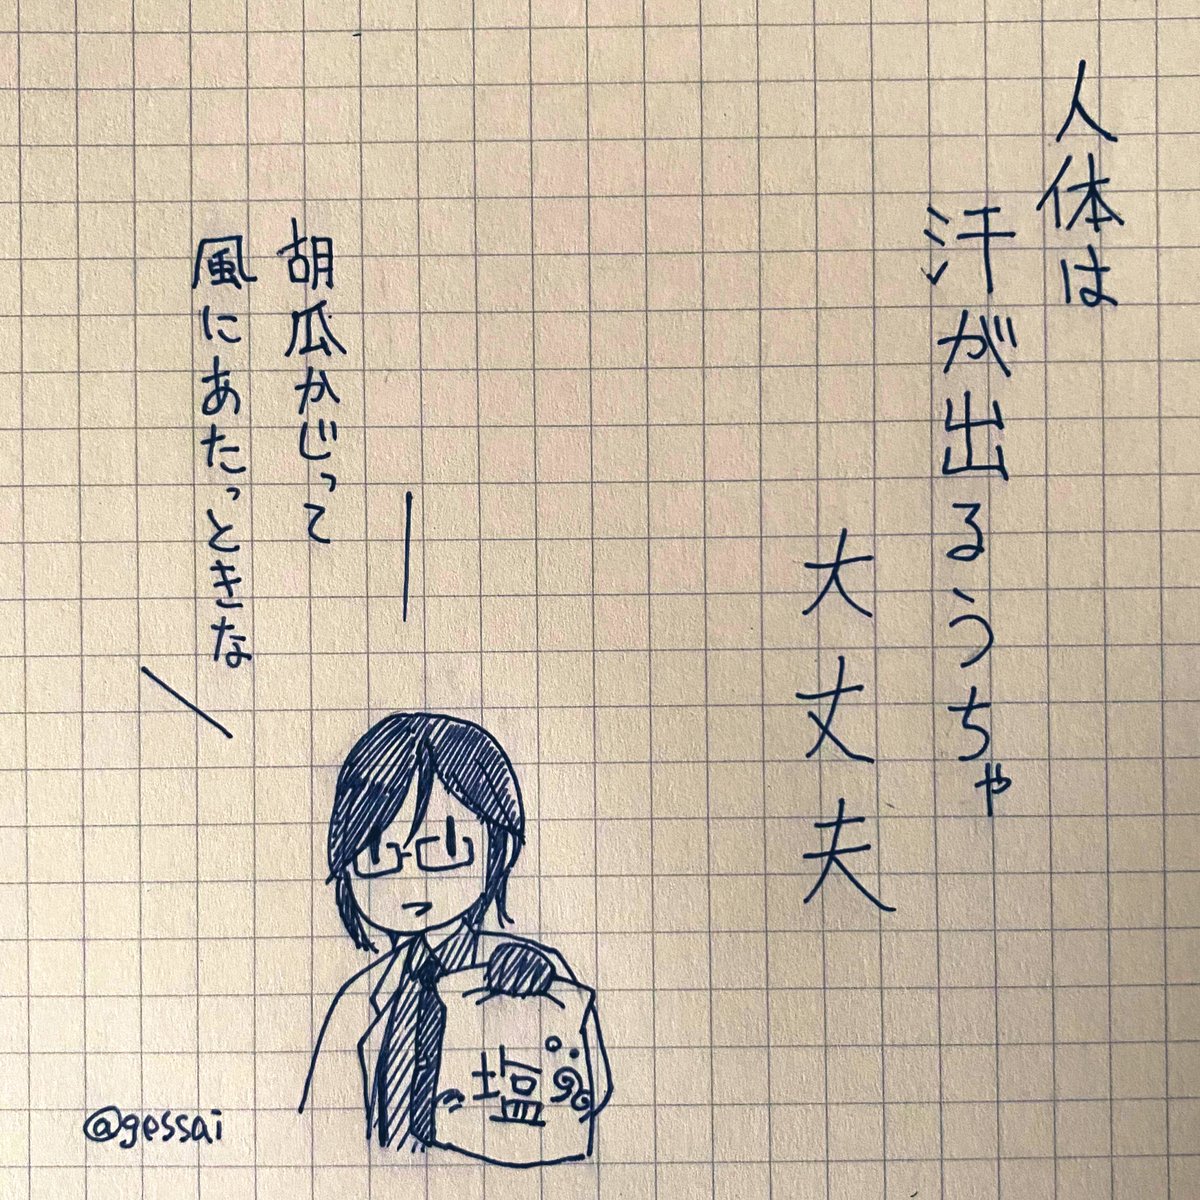 人体は
汗が出るうちゃ
大丈夫
胡瓜かじって
風にあたっときな
塩
@gessai